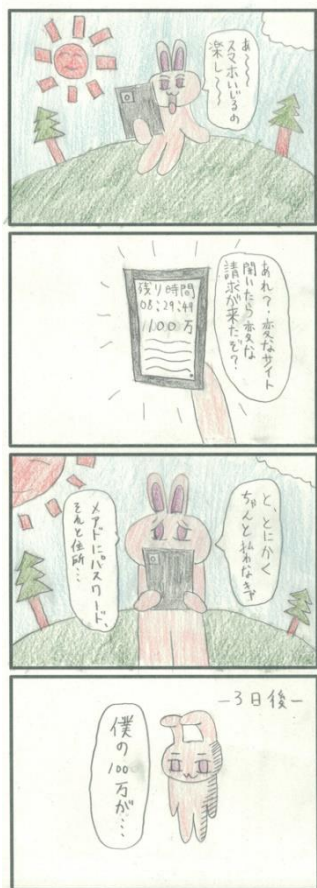 あ〜〜〜
スマホいじるの
楽し〜〜〜
あれ?変なサイト
開いたら変な
請求が来たぞ?
残り時間
08:29:49
100万
と、とにかく
ちゃんと払わなきゃ
メアドにパスワード、
それと住所…
-3日後-
僕の
100万が…